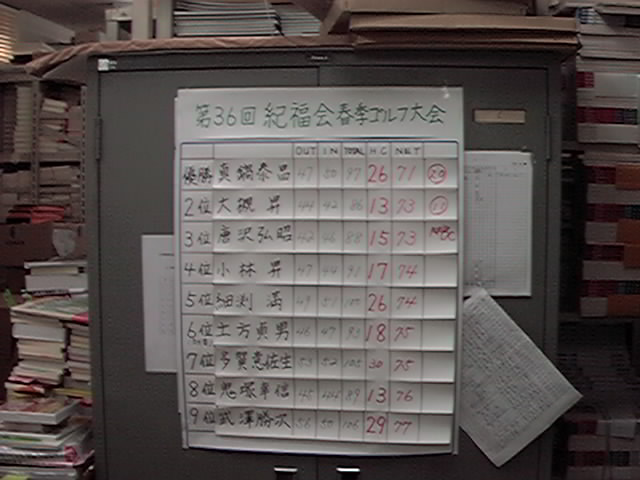 第36回 紀福会春季ゴルフ大会
OUT IN TOTAL HC NET
優勝 真鍋泰昌 47 50 97 26 71
2位 大槻 昇 44 42 86 13 73
3位 唐沢弘昭 42 46 88 15 73
4位 小林 昇 47 44 91 17 74
5位 細渕 満 49 51 100 26 74
6位 土方貞男 46 47 93 18 75
7位 多賀恵佐生 53 52 105 30 75
8位 鬼塚 信 45 44 89 13 76
9位 武澤勝次 56 50 106 29 77